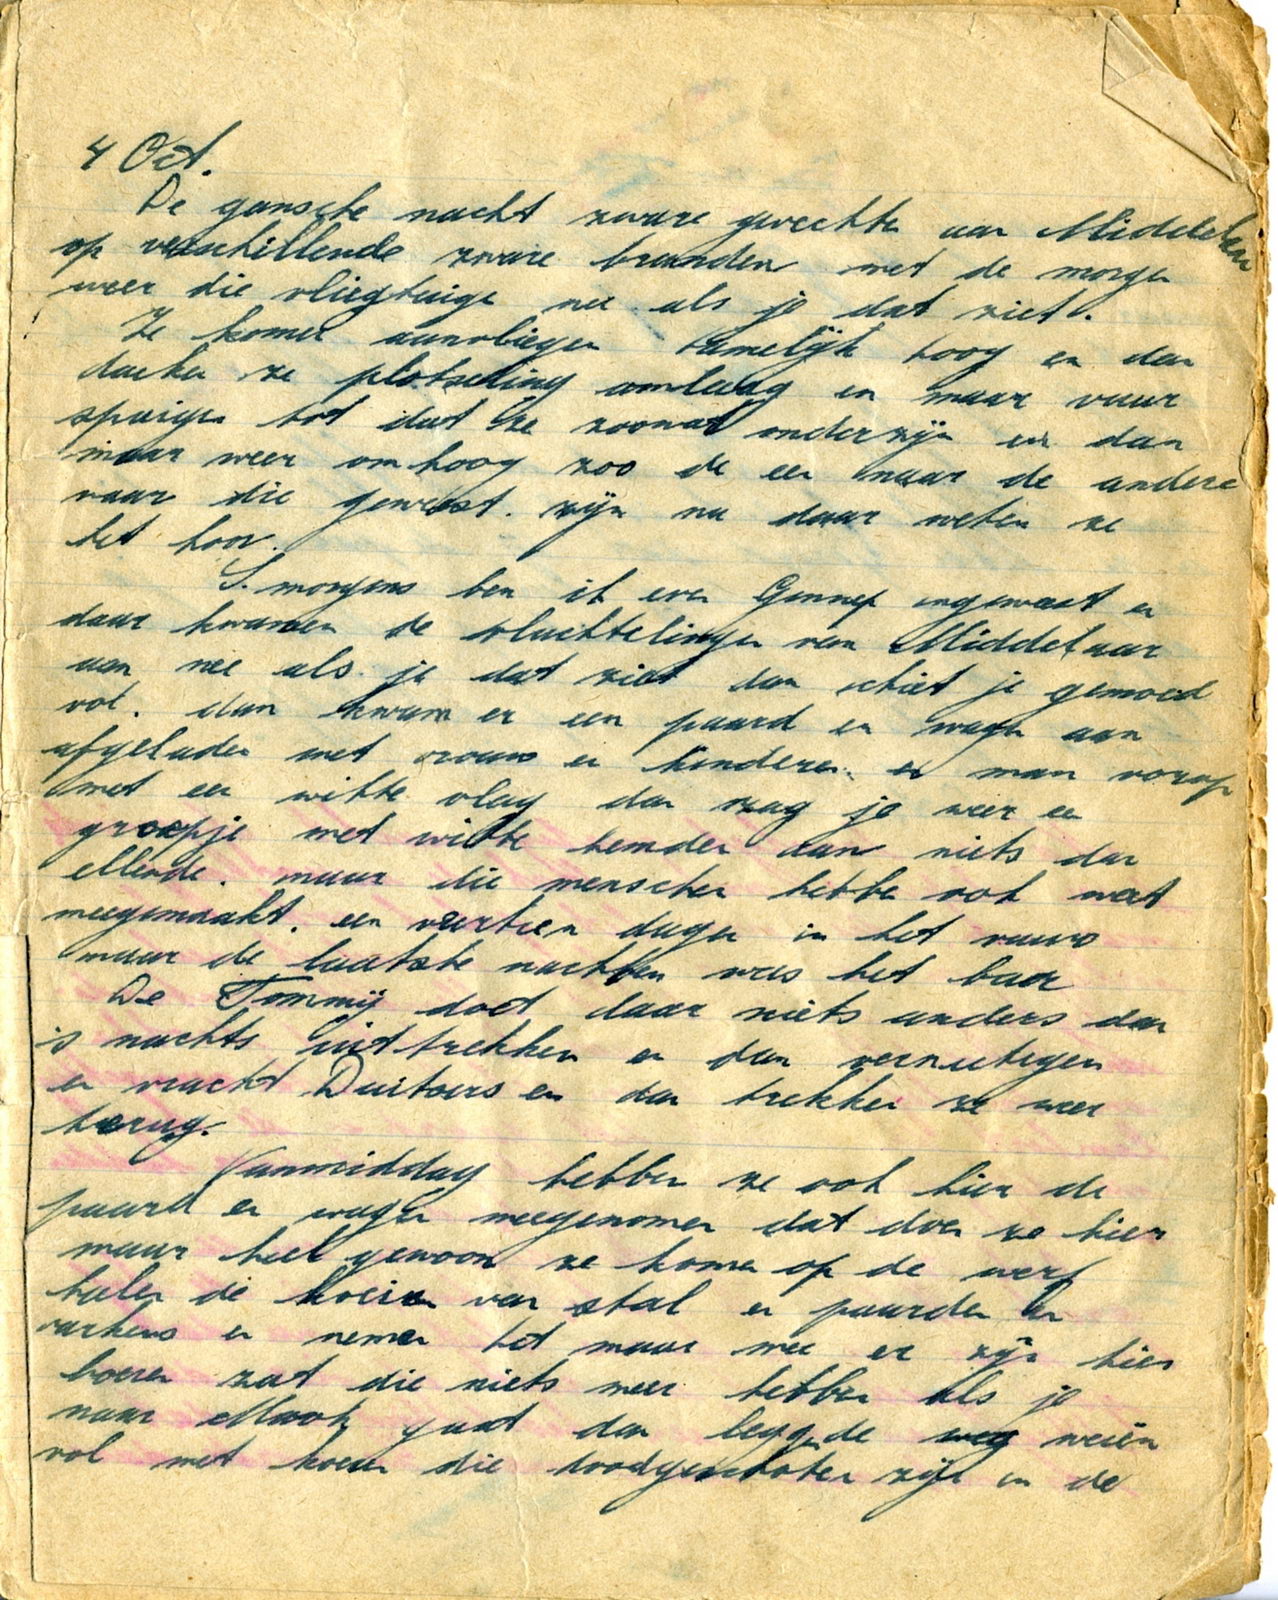 4 Oct.
De gansche nacht zware gevechte aar Middelaar
op verschillende zware branden met de morgen
weer die vliegtuige nee als je dat ziet.
Ze komen aanvliegen tamelijk hoog en dan
ducken ze plotseling omlaag en maar vuur
spuigen tot dat ze zoonat onderzijn en dan
maar weer omhoog zoo de een naar de andere
waar die geweest. zijn nu daar weten ze
het hoor.
S. morgens ben ik even Gennep ingeweest en
daar kwamen de vluchtelingen van Middelaar
aan nee als je dat ziet dan schiet je gemoed
vol. dan kwam er een paard en wagen aan
afgeladen met vrouw en kinderen en man vorop
met een witte vlag dan zag je weer een
groepje met witte hemden aan niets dan
ellende. maar die menschen hebbe ook wat
meegemaakt. een veertien dagen in het vuur
maar de laatste nachten was het baar
De Tommij doet daar niets anders dan
is nachts uittrekken en dan vernietigen
en vracht Duitsers en dan trekken ze weer
terug.
Vanmiddag hebben ze ook hier de
paard en wagen meegenomen dat doen ze hier
maar heel gewoon ze komen op de werf
halen de koeien van stal en paarden en
varkens en nemen het maar mee er zijn hier
boeren zat die niets meer hebben als je
naar Mook gaat dan leggen de weg weiën
vol met koeien die doodgeschoten zijn in de